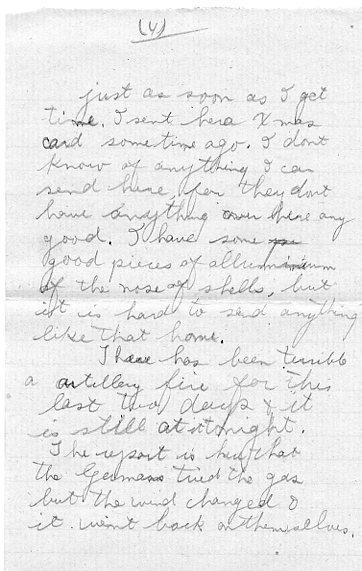 (4)
just as soon as I get
time. I sent her a Xmas
card some time ago. I dont
know of anything I can
send her for they dont
have anything over here any
good. I have some
good pieces of alluminium
of the nose of shells, but
it is hard to send anything
like that home.
There has been terrible
a artillery fire for this
last two days & it
is still at it tonight.
The report is here that
the Germans tried the gas
but the wind changed &
it went back on themselves.